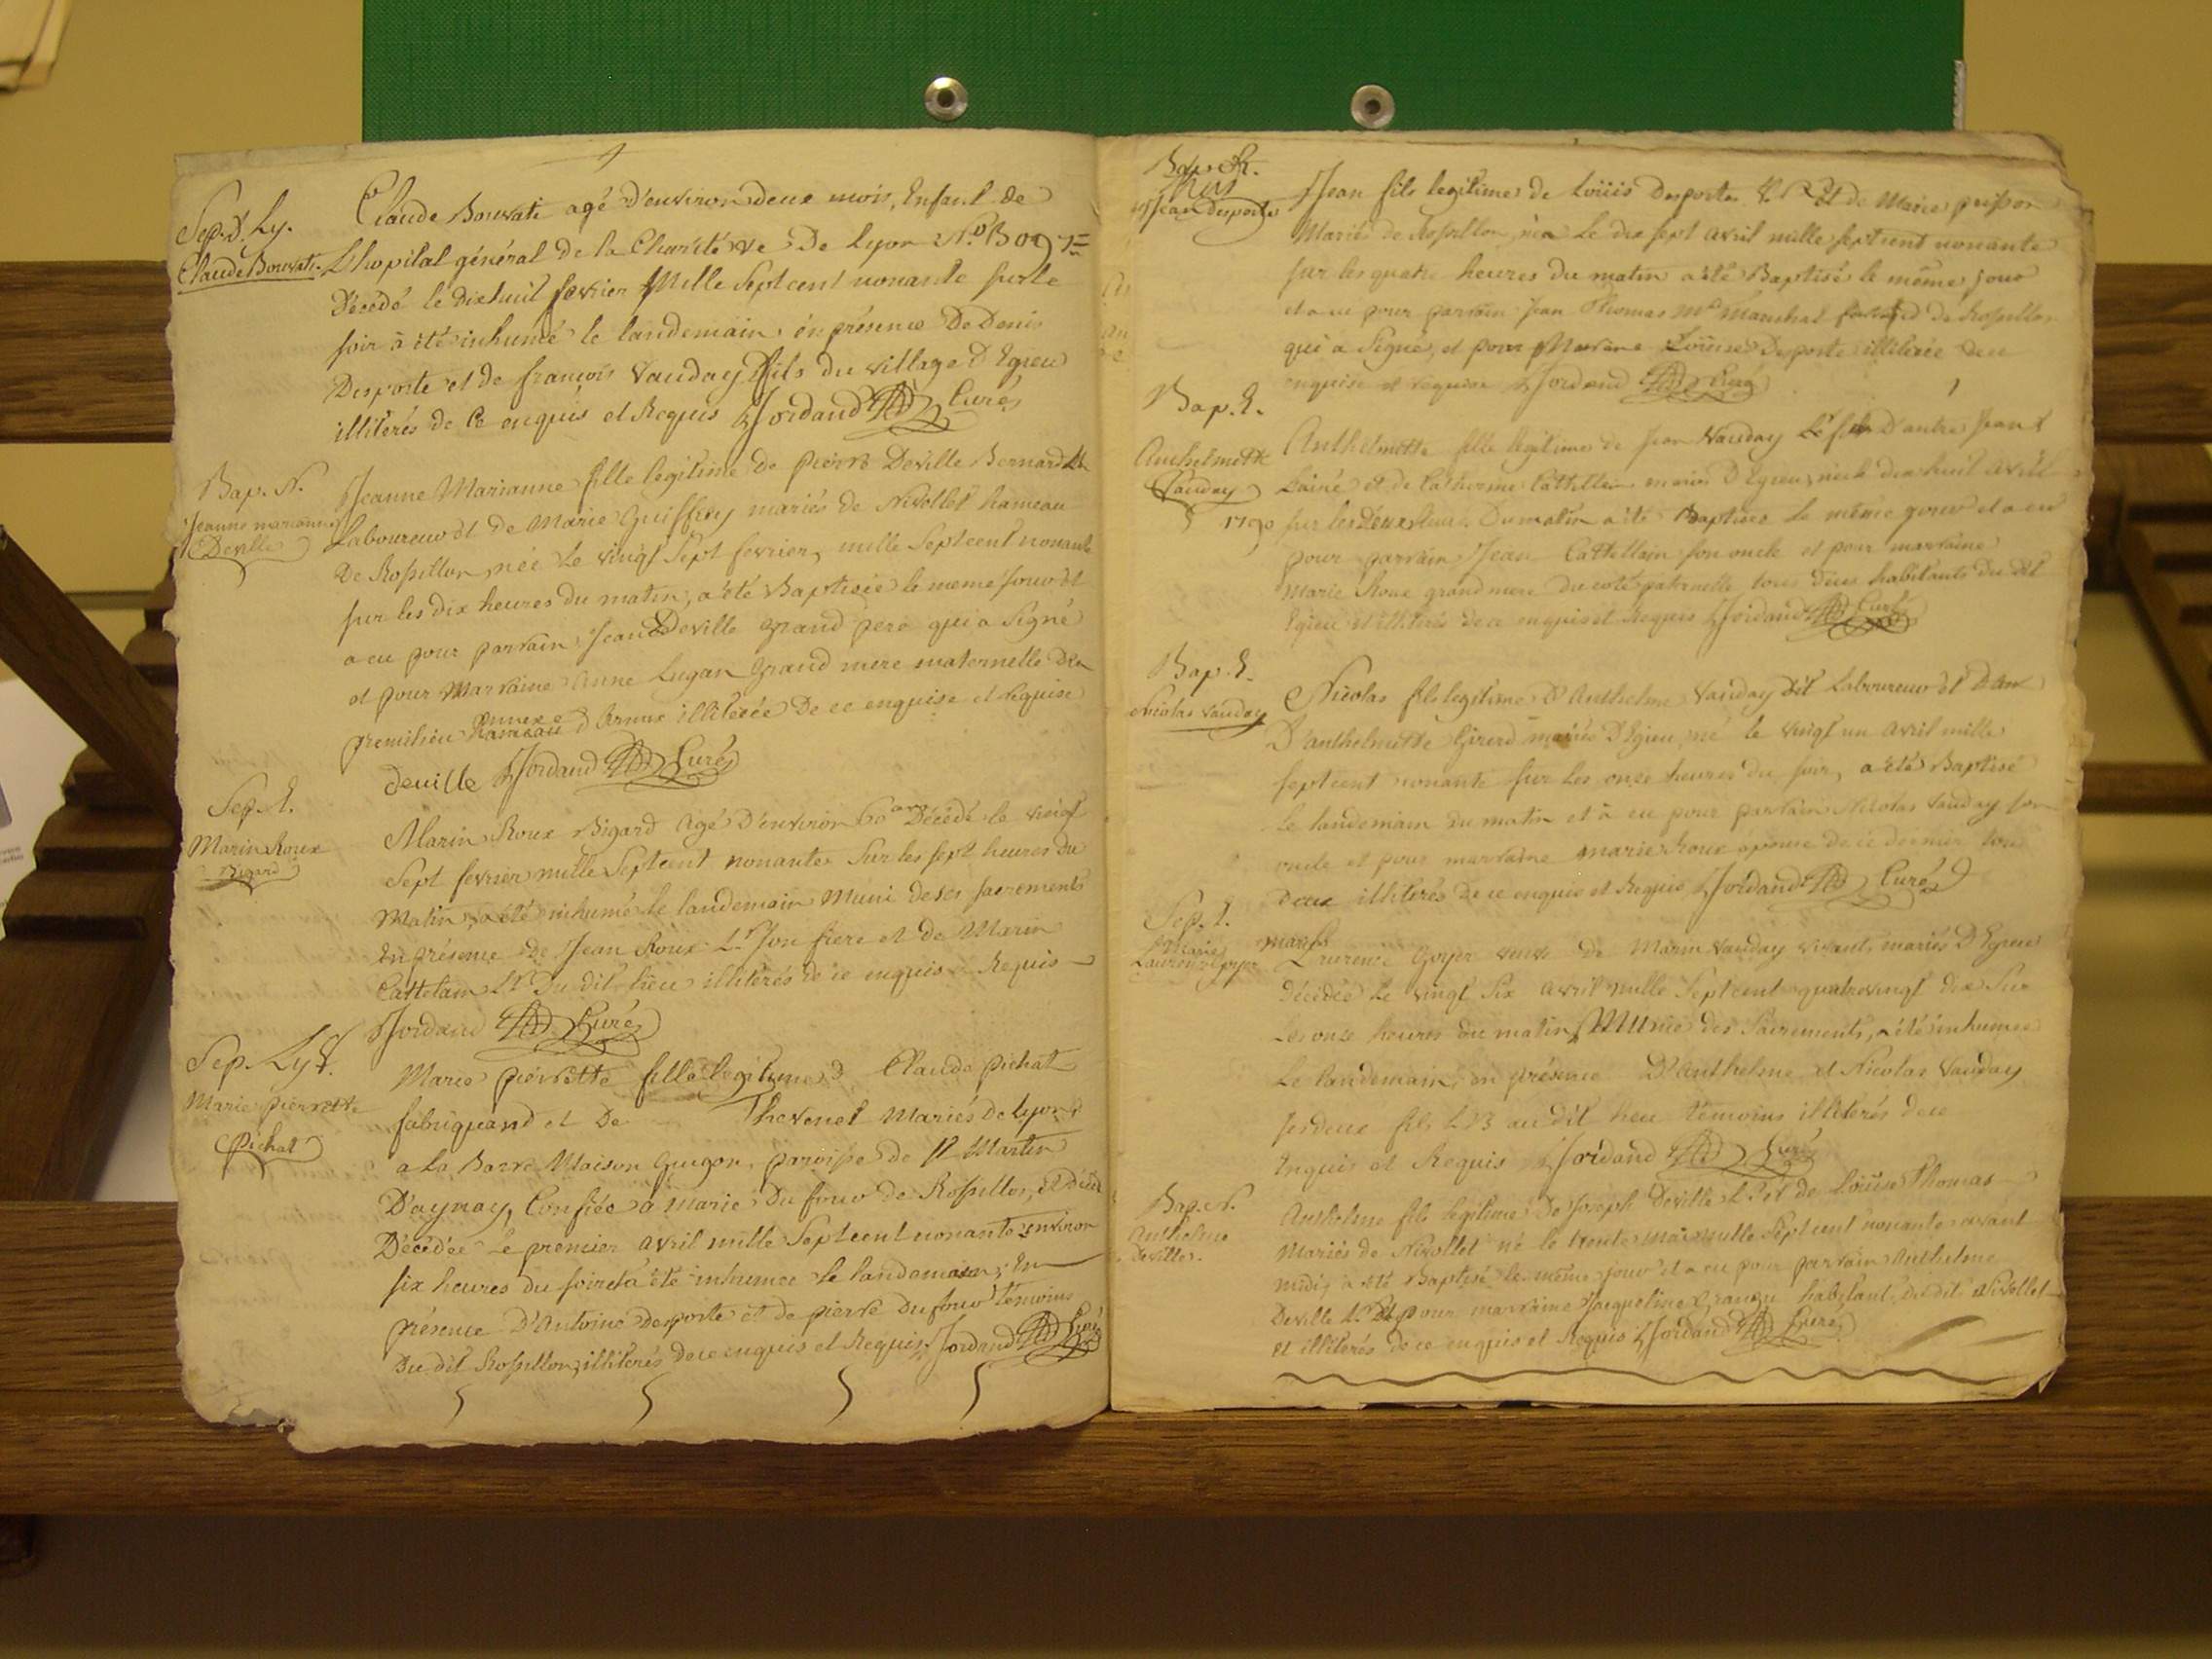 Sep. d. Ly.
Claude Bouvati.
Claude Bouvati agé d'environ deux mois, Enfant de
L'hopital général de la Charité De Lyon N.o
Décédé le dixhuit fevrier Mille Septcent nonante sur le
soir à été inhumé le landemain en présence De Denis
Desporte et de françois Vauday fils du village D'Egieu
illiterés de ce enquis et Requis Jordand Curé
Bap. N.
Jeanne marianne
Deville
Jeanne Marianne fille legitime de pierre Deville Bernard
Laboureur et de Marie Guiffrey mariés de Nivollet hameau
De Rossillon, née Le vingt Sept fevrier, mille Septcent nonante
sur les dix heures du matin, a été Baptisée le meme Jour et
a eu pour parrain Jean Deville grand pere qui a Signé
et pour Marraine Anne Lugan grand mere maternelle De
premilieu annexe d'Armix illiterée De ce enquise et requise
deville Jordand Curé
Sep. E.
Marin Roux
Bigard
Marin Roux Bigard Agé D'environ 60 ans Décédé le vingt
Sept fevrier mille Septcent nonante Sur les sept heures du
Matin, a été inhumé le landemain Muni de ses sacrements
En présence de Jean Roux L.r son frere et de Marin
Cattelain L.r Du dit lieu illiterés de ce enquis Requis
Jordand Curé
Sep. Ly
Marie pierrette
Pichat
Marie pierrette fille legitime d Claude pichat
fabriquand et De Thevenet Mariés de Lyon
a La Barre Maison Guigon, paroisse de St Martin
D'aynay, Confiée a Marie Dufour de Rossillon,
Décédée Le premier avril mille Septcent nonante environ
six heures du soir et a été inhumée le landemain, En
présence D'Antoine desporte et de pierre Dufour Témoins
Du dit Rossillon, illiterés de ce enquis et Requis Jordand Curé
Bap. R.
Jean desporte
Jean fils legitime de Loüis Desporte et de Marie
Mariés de Rossillon, né Le dix sept avril mille septcent nonante
sur les quatre heures du matin a été Baptisé le même jour
et a eu pour parrain Jean Thomas M.d Marechal de Rossillon
qui a Signé, et pour Maraine Loüise Desporte illiterée de ce
enquise et requise Jordand Curé
Bap. E.
Anthelmette
Vauday
1790
Anthelmette fille legitime de Jean Vauday D'autre Jean
Lainé et de Catherine Cattellain mariés D'Egieu, née le dix huit avril
sur les deux heures Du matin a été Baptisée Le même jour et a eu
pour parrain Jean Cattellain son oncle et pour marraine
Marie Roux grand mere du coté paternelle tous deux habitants du dit
Egieu et illiterés de ce enquis et Requis Jordand Curé
Bap. E.
Nicolas Vauday
Nicolas fils legitime D'Anthelme Vauday dit Laboureur et
D'anthelmette Girerd mariés D'Egieu, né le vingt un avril mille
septcent nonante sur Les onze heures du soir, a été Baptisé
Le landemain du matin et à eu pour parrain Nicolas Vauday son
oncle et pour marraine marie Roux epouse de ce dernier tous
Deux illiterés de ce enquis et Requis Jordand Curé
Sep. E.
Marie
Laurence Goyer
marie
Laurence Goyer veuve de Marin Vauday vivants mariés D'Egieu
décédée Le vingt Six avril mille Septcent quatrevingt dix Sur
Les onze heures du matin, Munie des Sacrements, a été inhumée
Le landemain, en présence D'Anthelme et Nicolas Vauday
ses deux fils au dit lieu témoins illiterés de ce
Enquis et Requis Jordand Curé
Bap. N.
Anthelme
Deville.
Anthelme fils legitime De Joseph Deville L.r et de Loüise Thomas
Mariés de Nivollet né le trente mai mille Septcent nonante avant
midi, a été Baptisé le même jour et a eu pour parrain Anthelme
Deville L.r et pour marraine Jacqueline habitant du dit Nivollet
et illiterés de ce enquis et Requis Jordand Curé